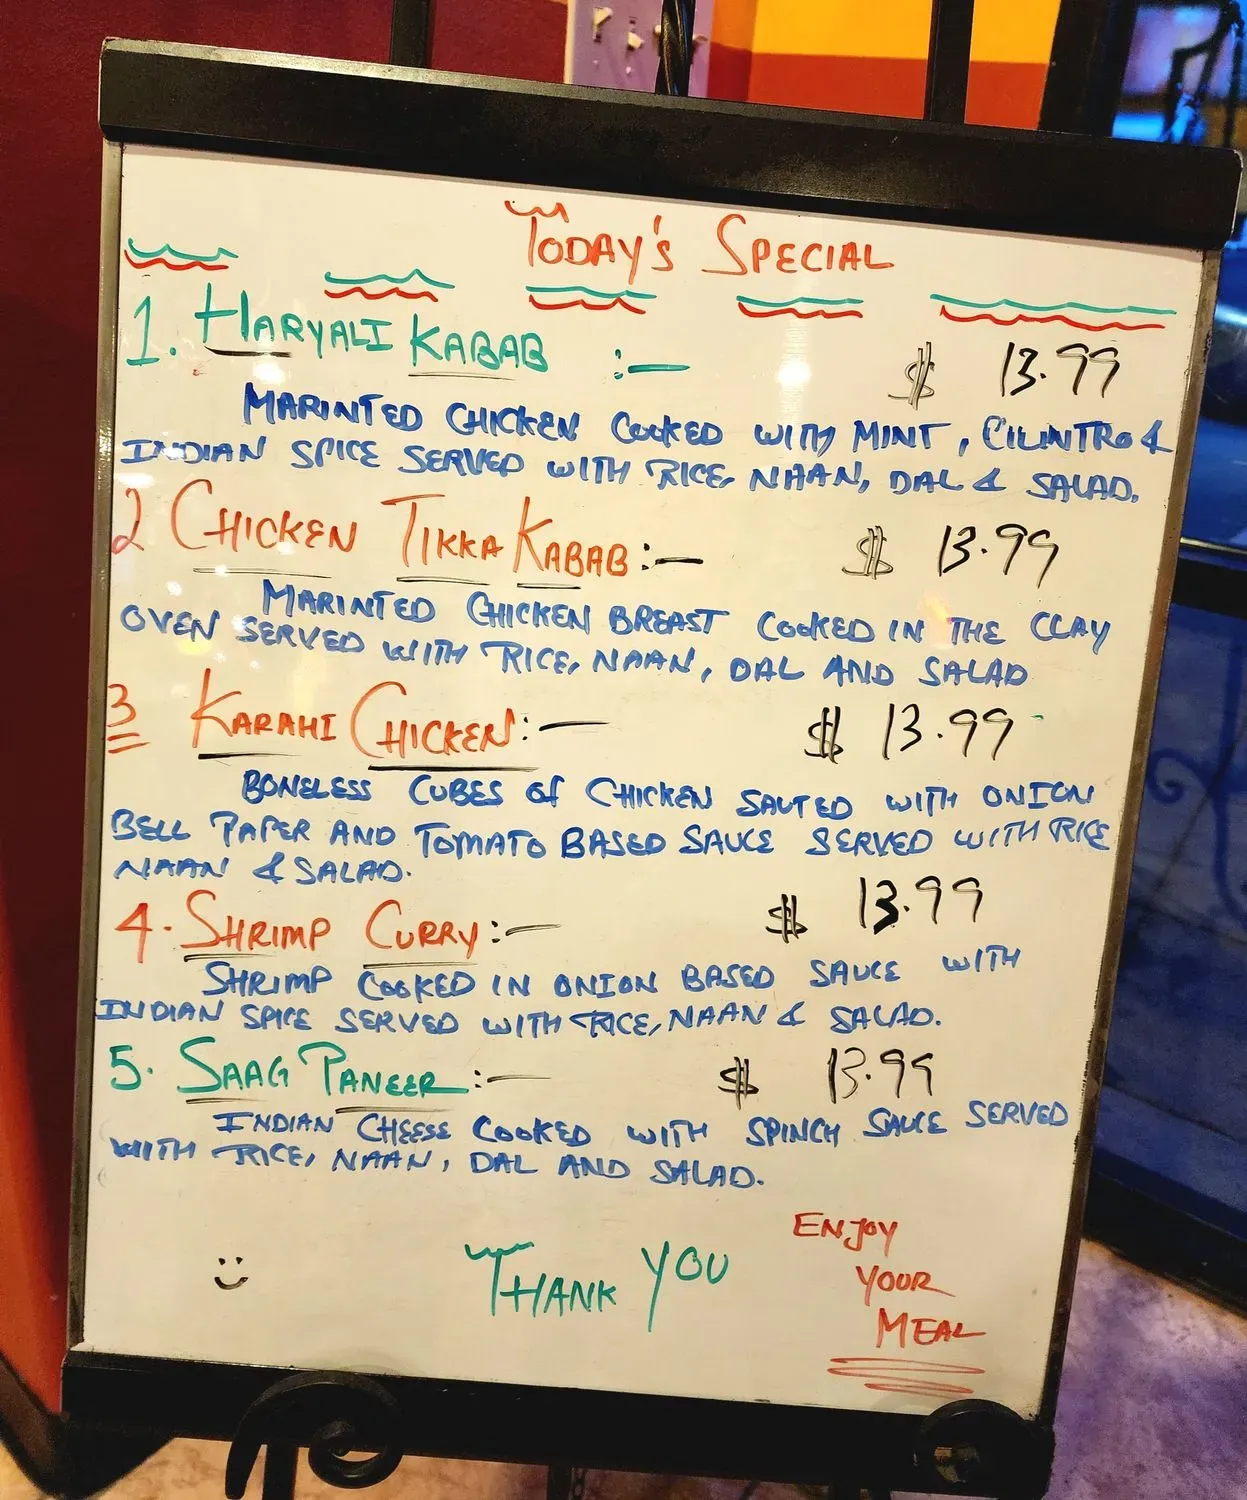 TODAY'S SPECIAL
1. HARYALI KABAB :- $ 13.99
MARINTED CHICKEN COOKED WITH MINT, CILINTRO &
INDIAN SPICE SERVED WITH RICE, NAAN, DAL & SALAD.
2 CHICKEN TIKKA KABAB :- $ 13.99
MARINTED CHICKEN BREAST COOKED IN THE CLAY
OVEN SERVED WITH RICE, NAAN, DAL AND SALAD
3 KARAHI CHICKEN :- $ 13.99
BONELESS CUBES OF CHICKEN SAUTED WITH ONION
BELL PAPER AND TOMATO BASED SAUCE SERVED WITH RICE
NAAN & SALAD.
4. SHRIMP CURRY :- $ 13.99
SHRIMP COOKED IN ONION BASED SAUCE WITH
INDIAN SPICE SERVED WITH RICE, NAAN & SALAD.
5. SAAG PANEER :- $ 13.99
INDIAN CHEESE COOKED WITH SPINCH SAUCE SERVED
WITH RICE, NAAN, DAL AND SALAD.
THANK YOU
ENJOY
YOUR
MEAL